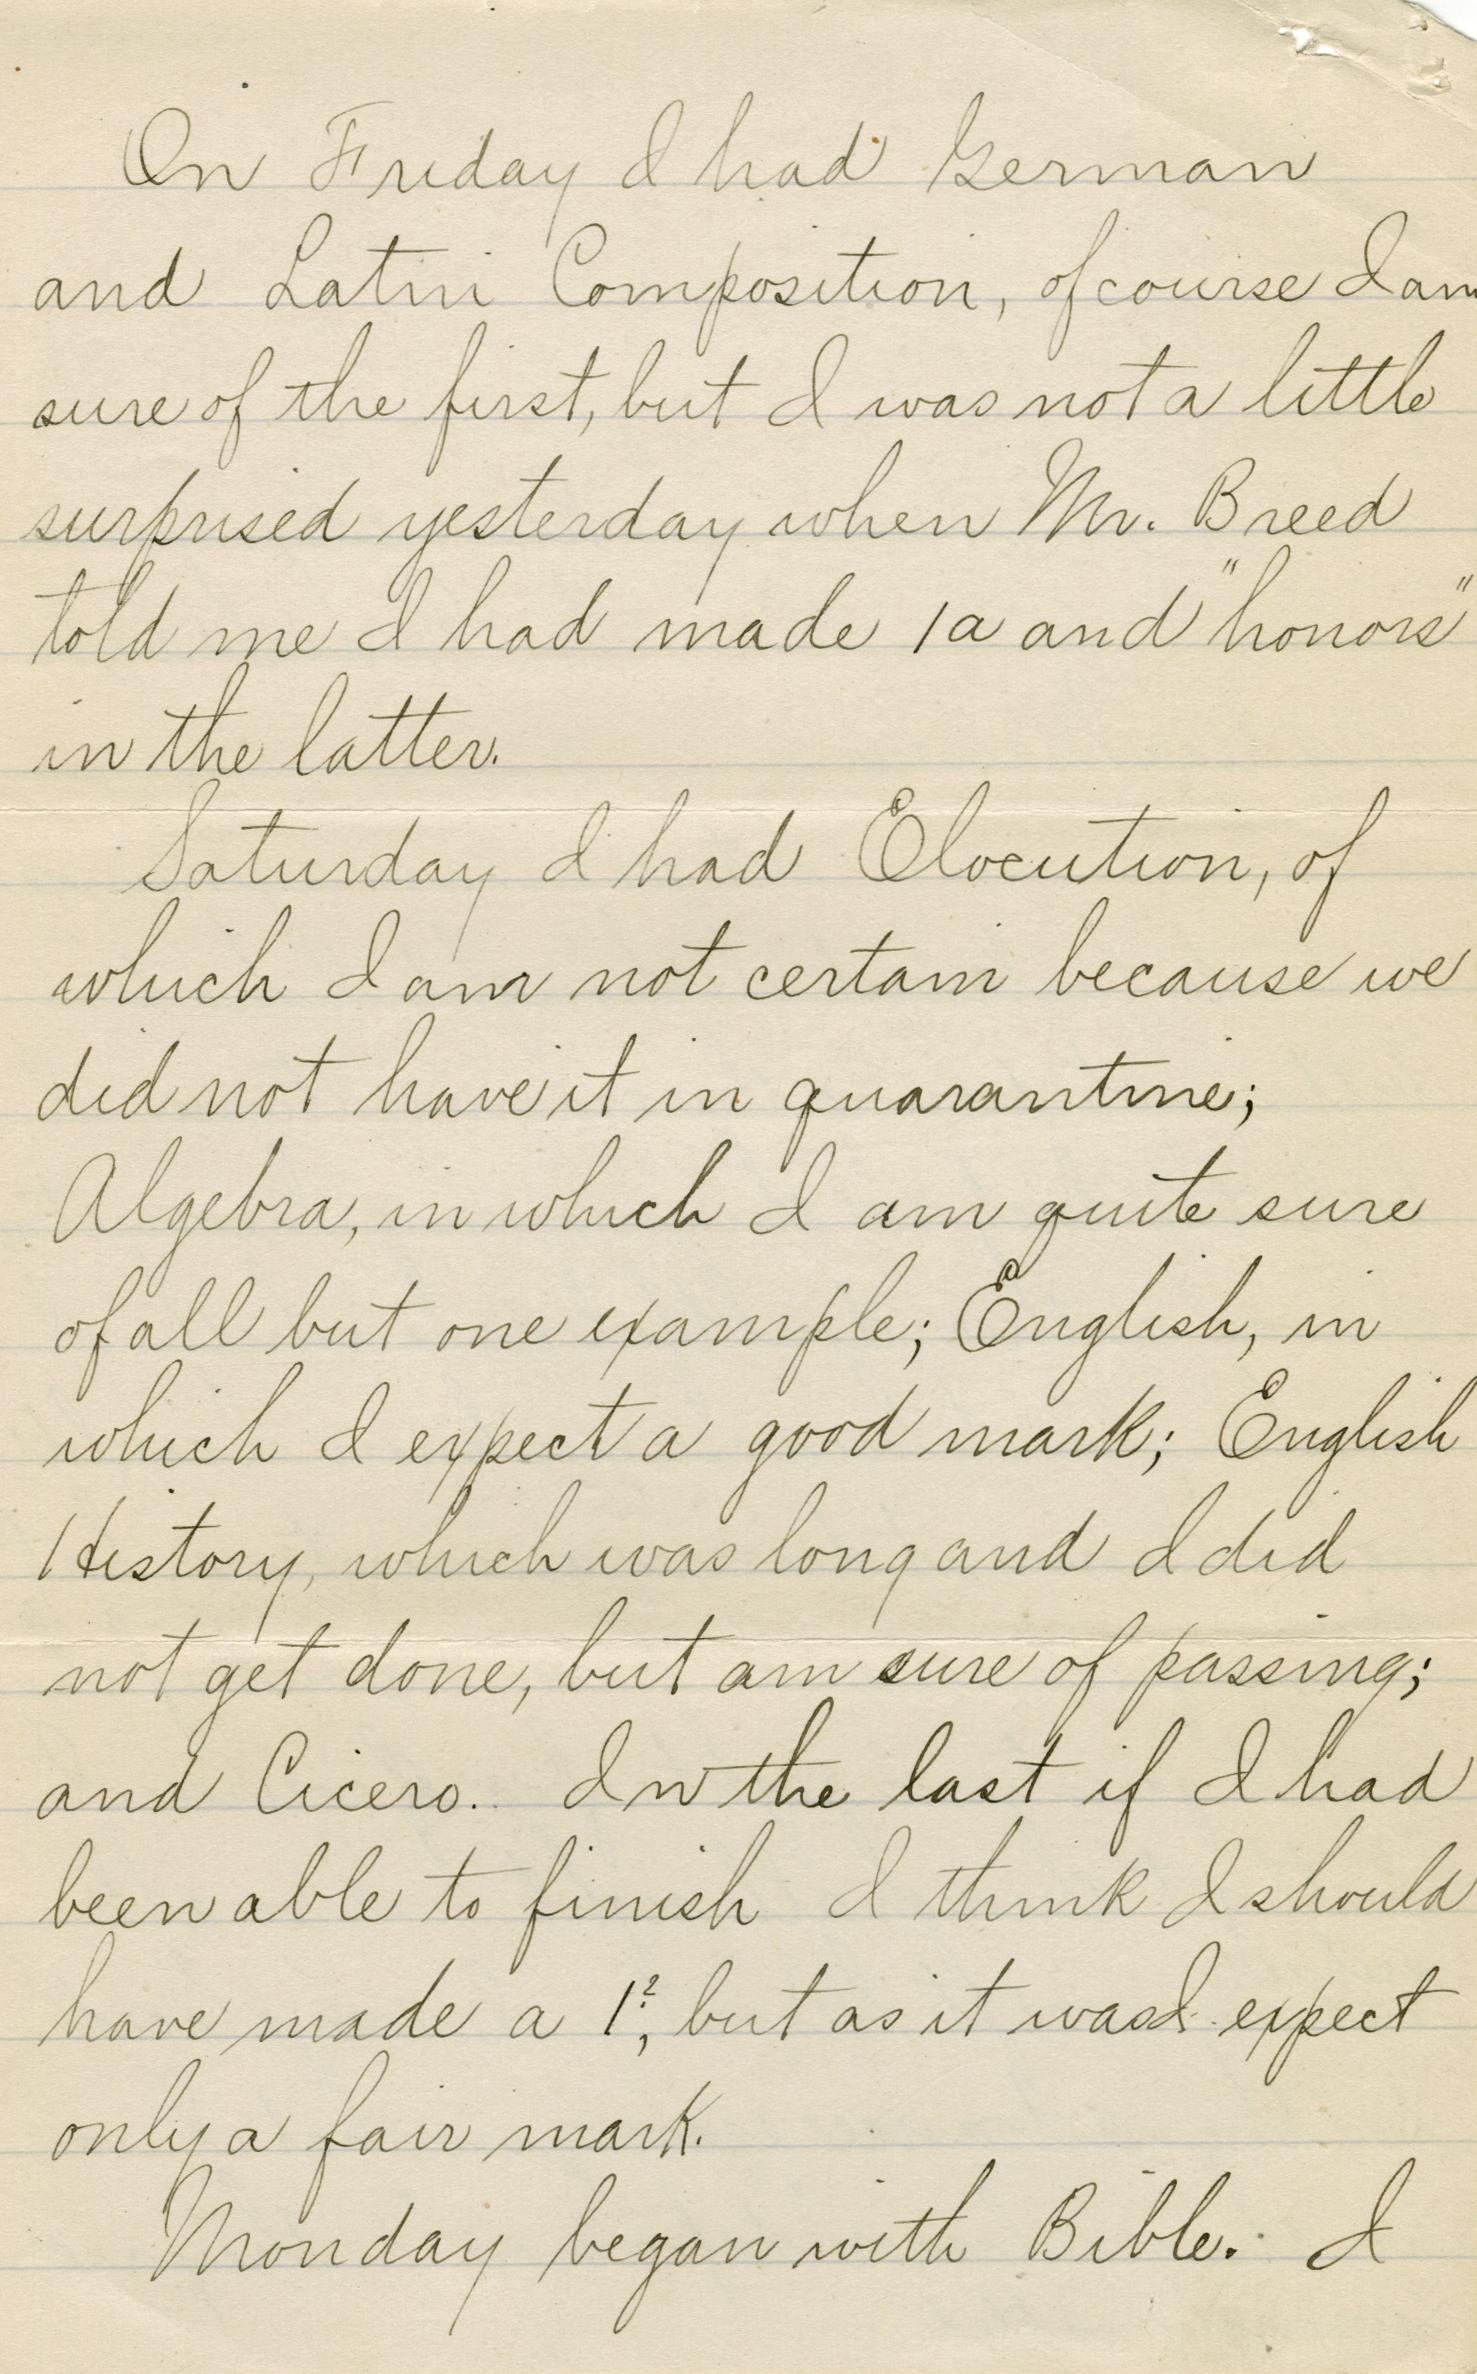 On Friday I had German
and Latin Composition, of course I am
sure of the first, but I was not a little
surprised yesterday when Mr. Breed
told me I had made 1a and "honors"
in the latter.
Saturday I had Elocution, of
which I am not certain because we
did not have it in quarantine;
Algebra, in which I am quite sure
of all but one example; English, in
which I expect a good mark; English
History, which was long and I did
not get done, but am sure of passing;
and Cicero. In the last if I had
been able to finish I think I should
have made a 1², but as it was I expect
only a fair mark.
Monday began with Bible. I